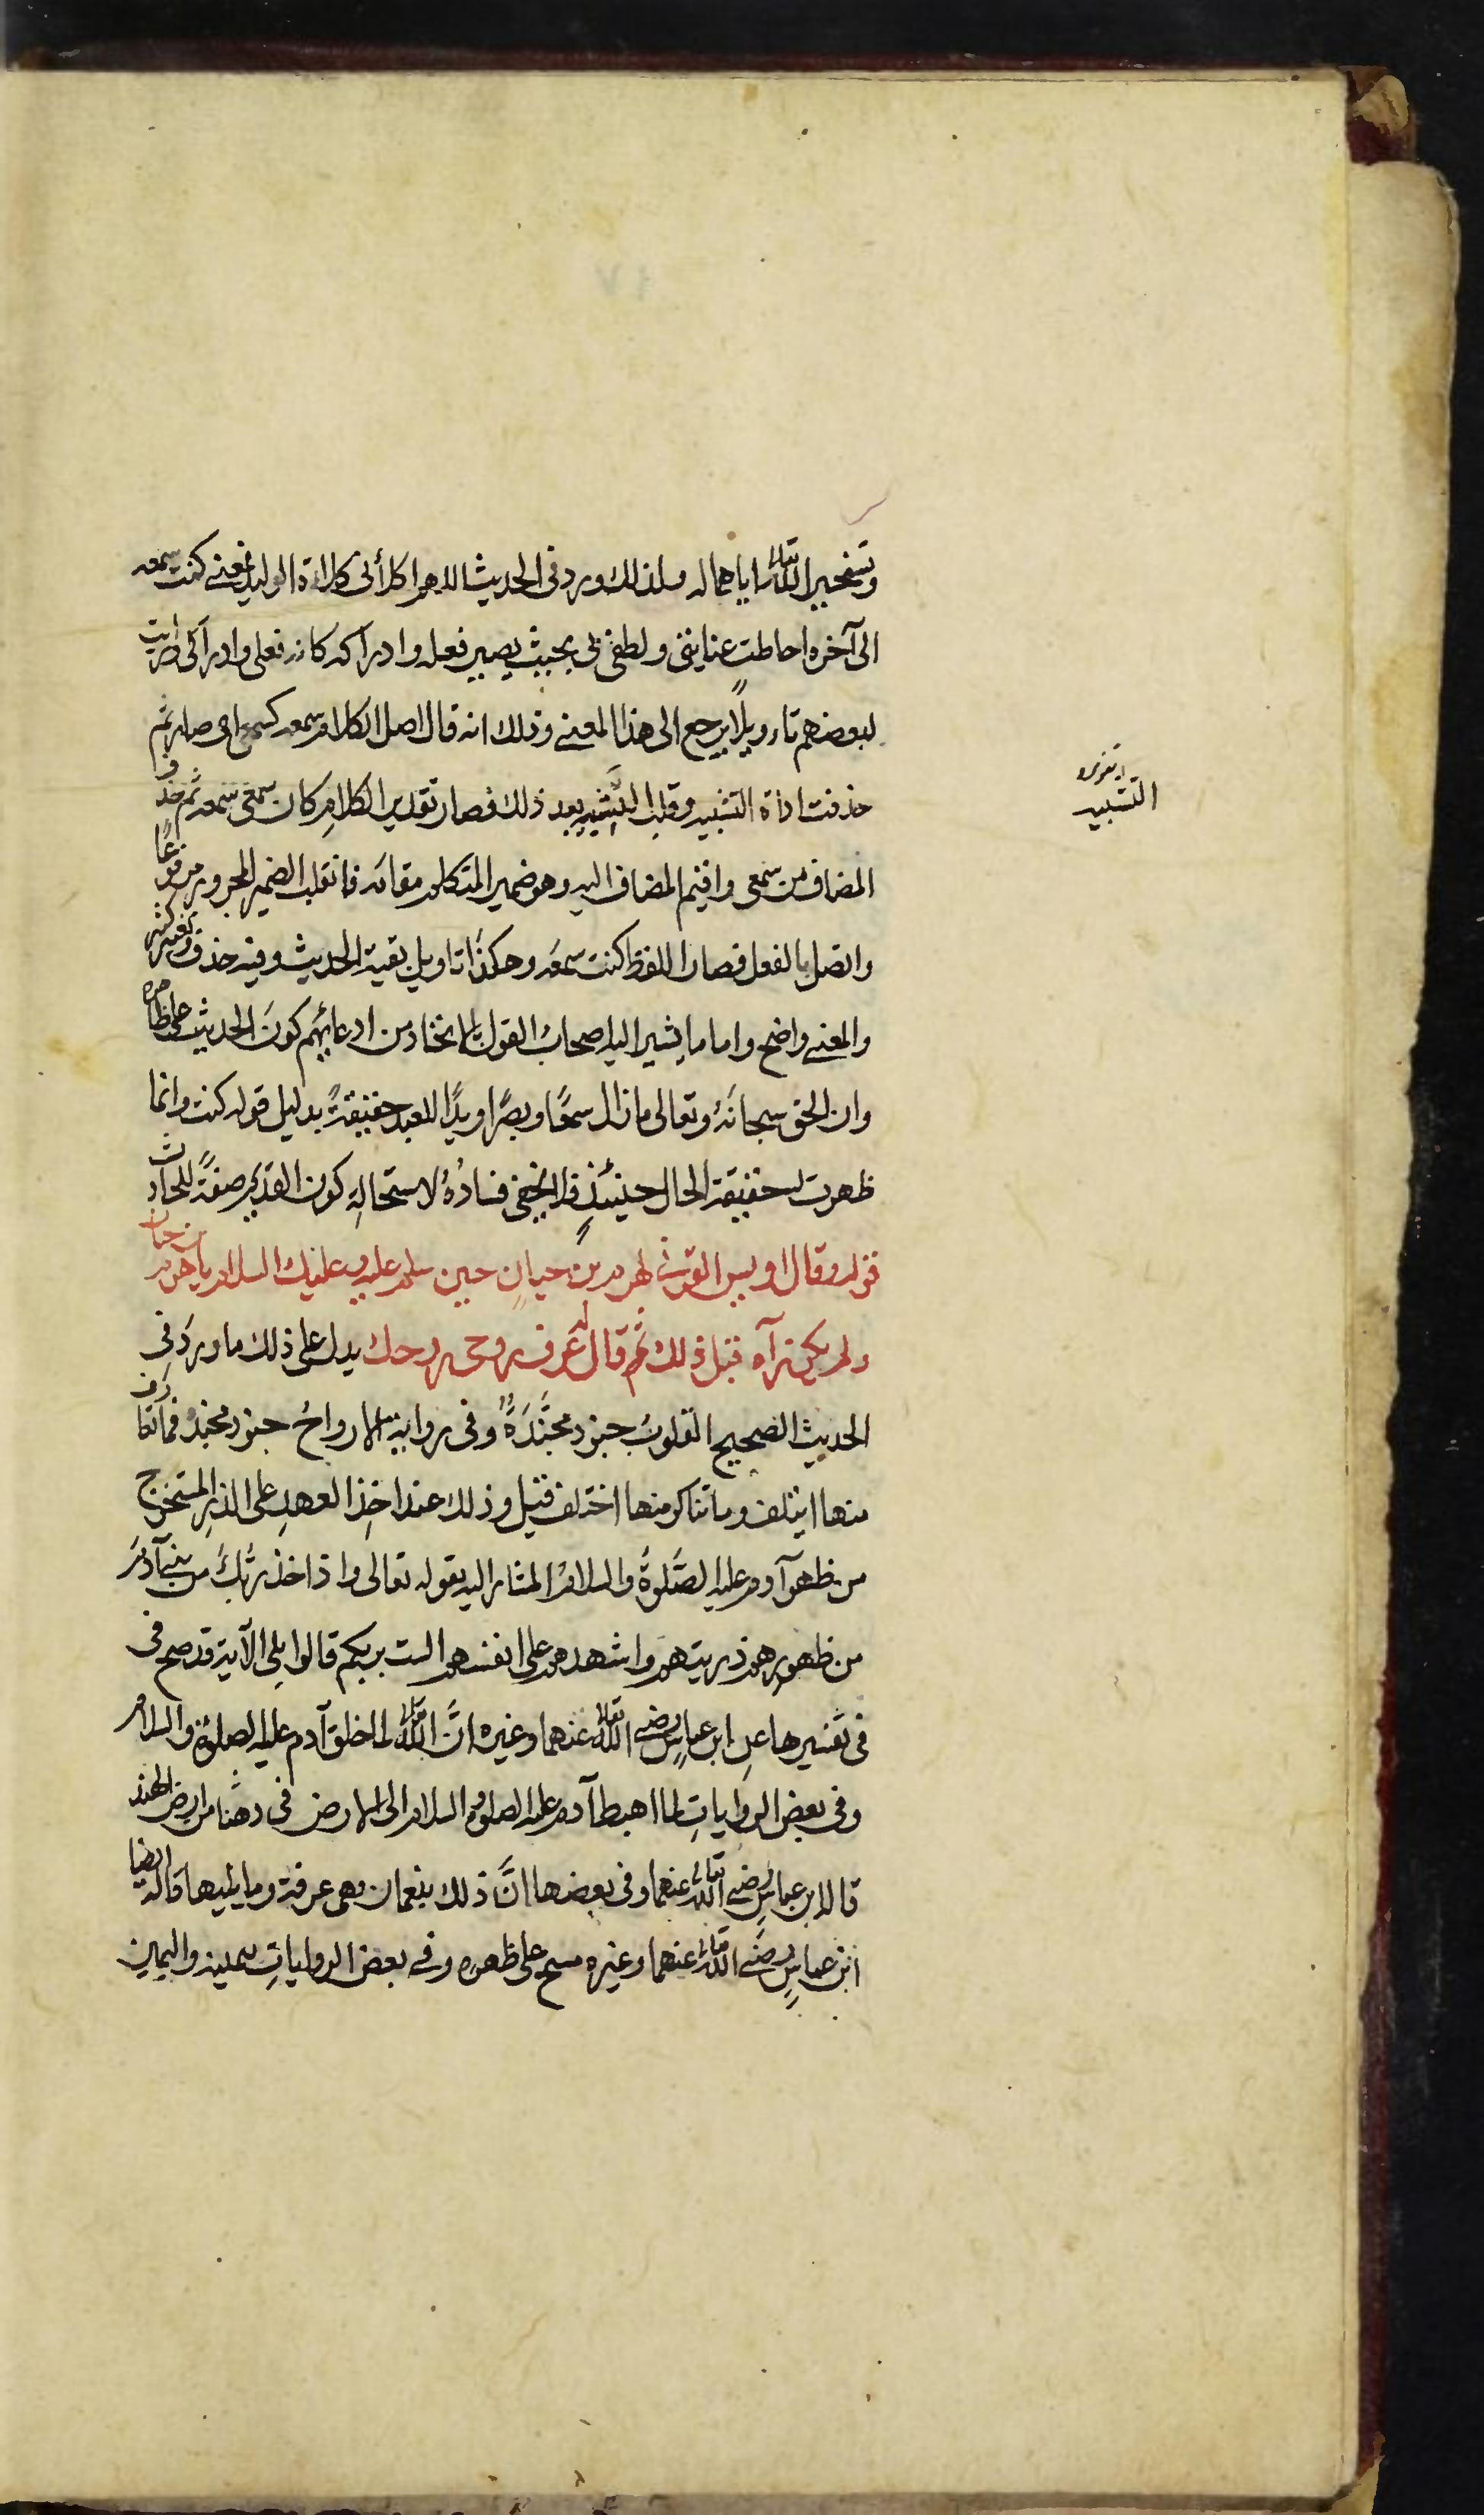 وتسخير الله تعالى اياهما له ولذلك ورد في الحديث اللهم اكلأني كلاءة الوليد فمعنى كنت سمعه
الى آخره احاطت عنايتي ولطفي به بحيث يصير فعله وادراكه كانه فعلي وادراكي ورايت
لبعضهم تاءويلًا يرجع الى هذا المعنى وذلك انه قال اصل الكلام سمعه كسمعي اي صار ثم
حذفت اداة التشبيه وقلب التشبيه بعد ذلك فصار تقدير الكلام كان سمعي سمعه ثم حذف
المضاف من سمعي واقيم المضاف اليه وهو ضمير المتكلم مقامه فانقلب الضمير المجرور مرفوعًا
واتصل بالفعل فصار اللفظ كنت سمعه وهكذا تاويل بقية الحديث وفيه حذف وتغيير كثير
والمعنى واضح واما ما يشير اليه اصحاب القول بالاتحاد من ادعائهم كون الحديث على ظاهره
وان الحق سبحانه وتعالى ما زال سمعًا وبصرًا ويدًا للعبد حقيقةً بدليل قوله كنت وانما
ظهرت له حقيقة الحال حينئذٍ فلا يخفى فسادُهُ لاستحالةِ كون القديم صفةً للحادث
قوله وقال اويس القرني لهرم بن حيان حين سلم عليه وعليك السلام يا هرم بن حيان
ولم يكن رآه قبل ذلك ثم قال له عرف روحي روحك يدل على ذلك ما ورد في
الحديث الصحيح القلوبُ جنود مجنَّدَةٌ وفي رواية الارواحُ جنود مجندة فما تعارف
منها ايتلف وما تناكر منها اختلف قيل وذلك عند اخذِ العهدِ على الذرِ المستخرج
من ظهر آدم عليه الصَّلوةُ والسلامُ المشار اليه بقوله تعالى واذ اخذ ربُّكَ من بني آدمَ
من ظهورهم ذريتهم واشهدهم على انفسهم الست بربكم قالوا بلى الآية وقد صح في
في تفسيرها عن ابن عباسٍ رضي الله تعالى عنهما وغيره انَّ الله تعالى لما خلق آدم عليه الصلوة والسلام
وفي بعض الرواياتِ لما اهبط آدم عليه الصلوة والسلام الى الارض في دهنا من ارض الهند
قاله ابن عباسٍ رضي الله تعالى عنهما وفي بعضها انَّ ذلك بنعمان وهي عرفة وما يليها قاله ايضا
ابن عباسٍ رضي الله تعالى عنهما وغيره مسح على ظهره وفي بعض الرواياتِ بيمينه واليمين
التشبيه